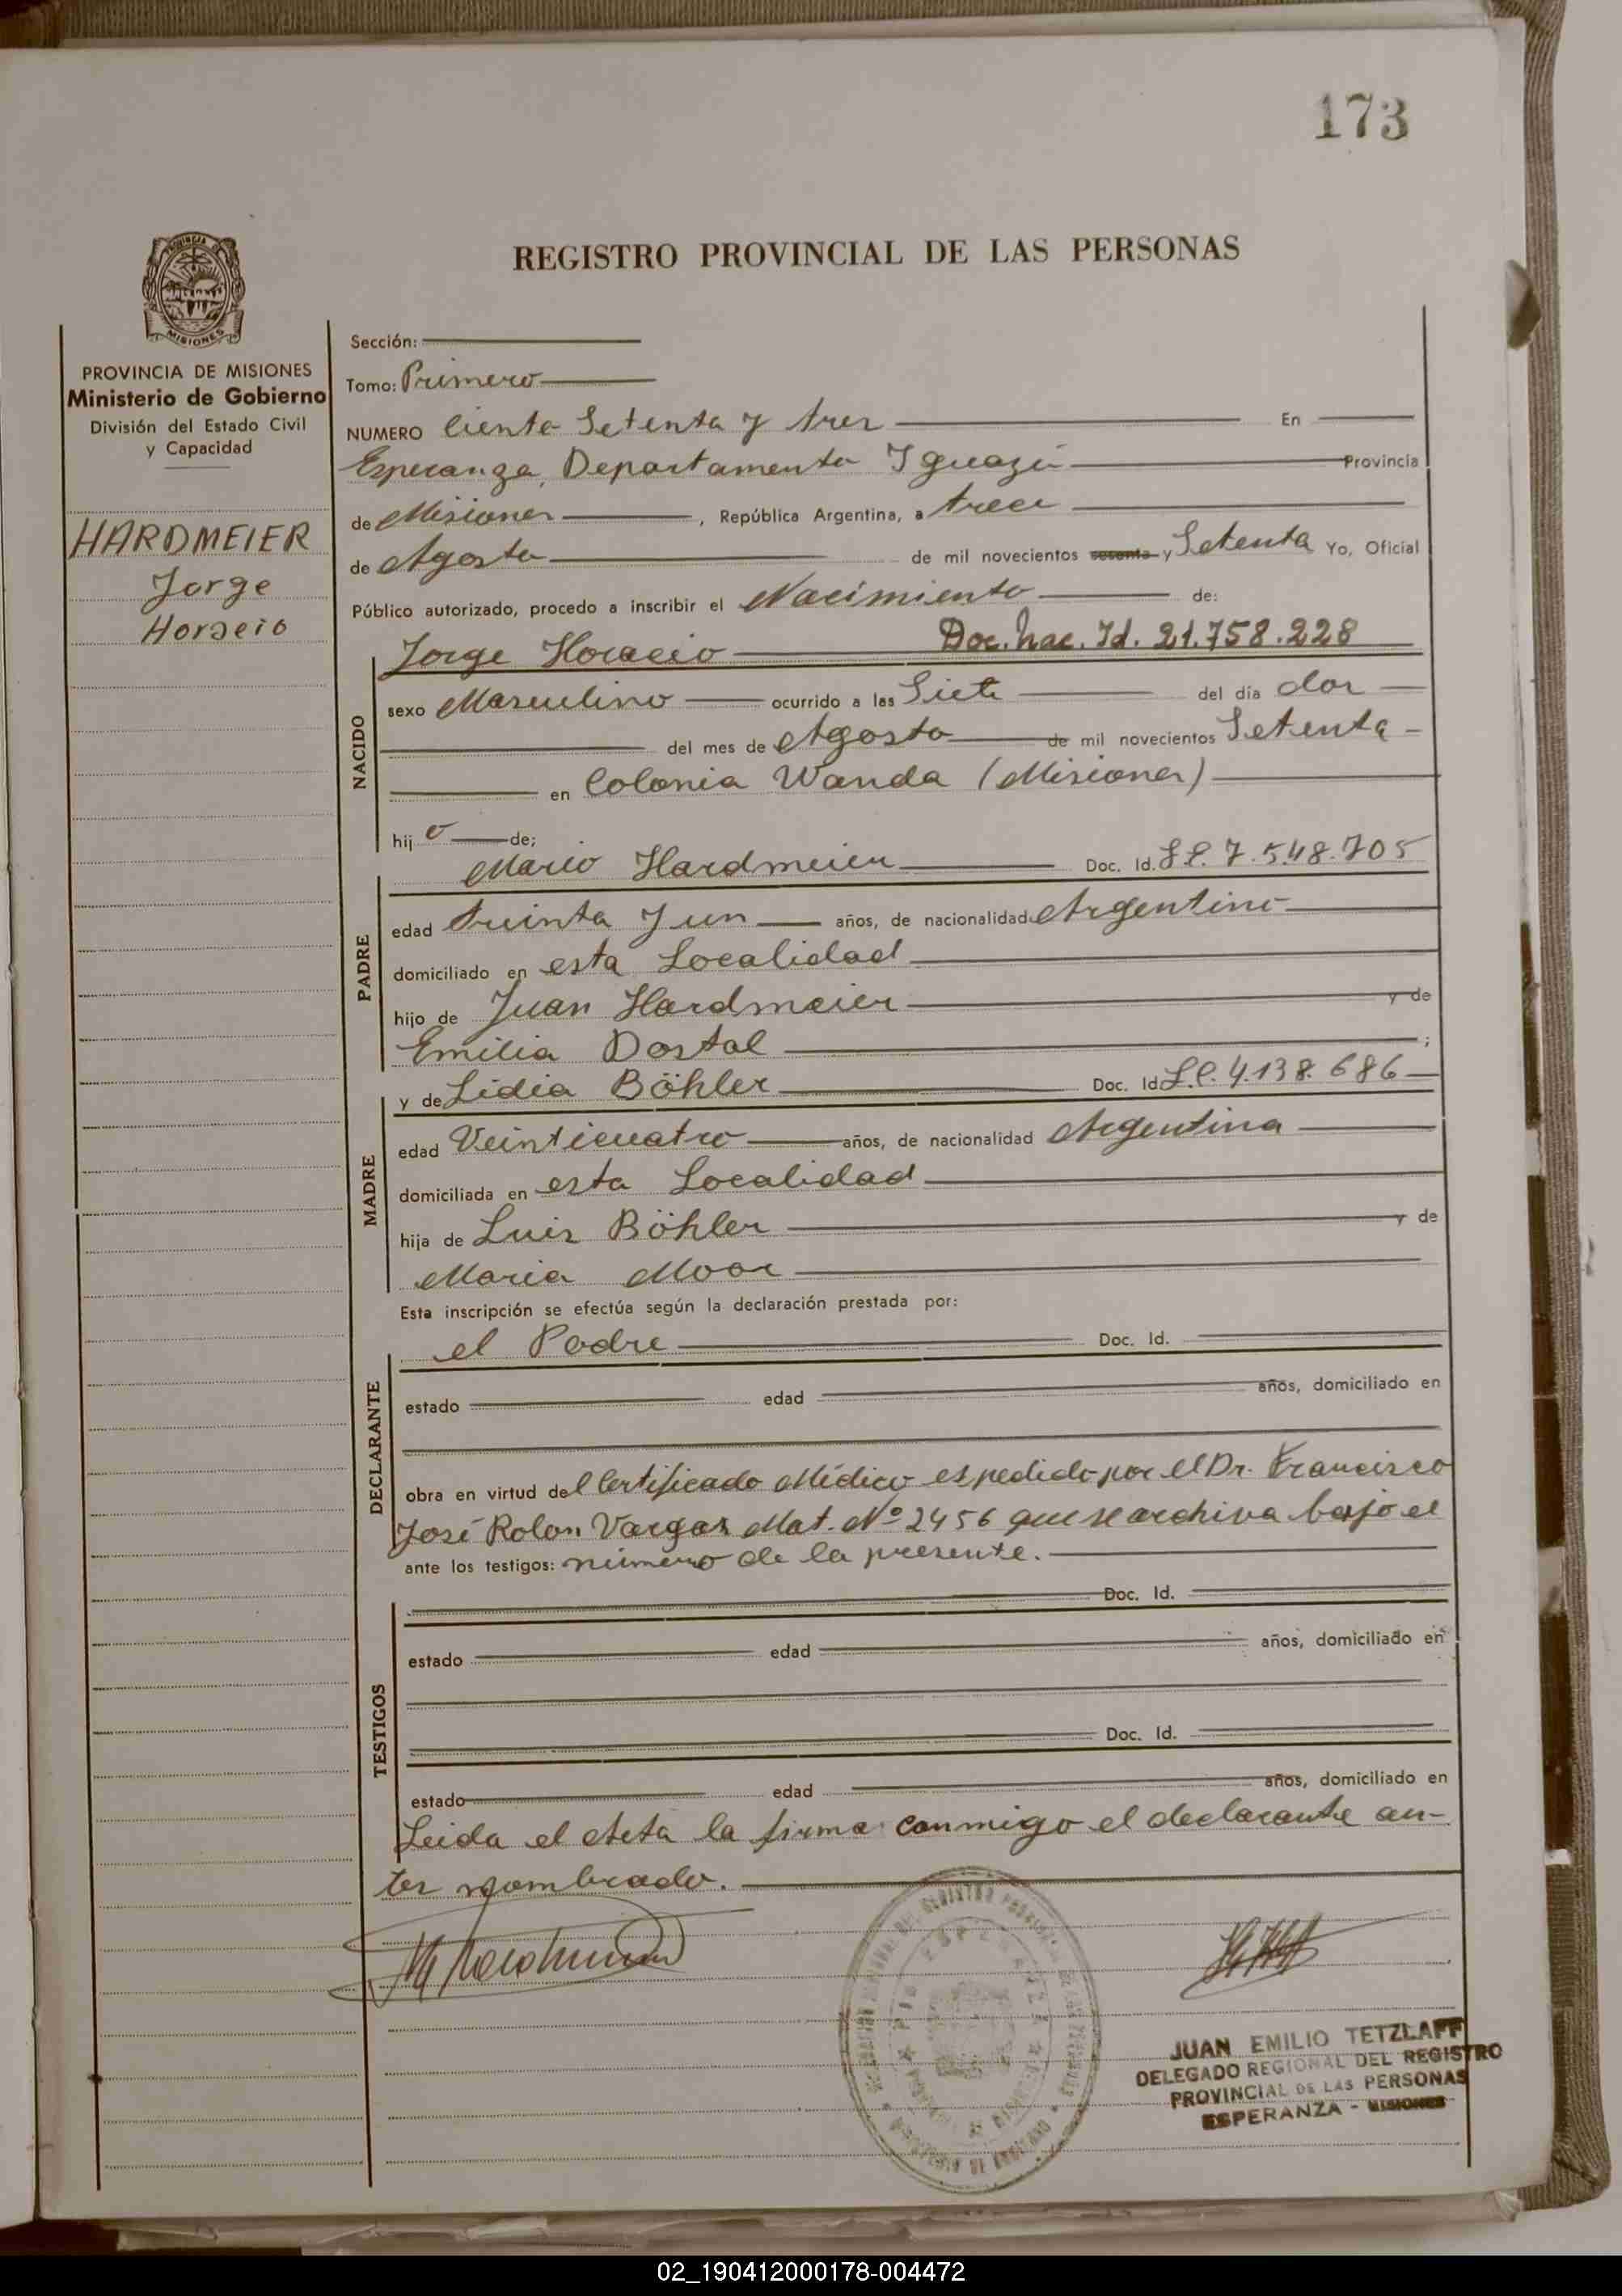 173
REGISTRO PROVINCIAL DE LAS PERSONAS
PROVINCIA DE MISIONES
MISIONES
PROVINCIA DE MISIONES
Ministerio de Gobierno
División del Estado Civil
y Capacidad
HARDMEIER
Jorge
Horacio
Sección:
Tomo: Primero
NUMERO Ciento Setenta y tres En
Esperanza, Departamento Iguazú Provincia
de Misiones, República Argentina, a trece
de Agosto de mil novecientos sesenta y Setenta Yo, Oficial
Público autorizado, procedo a inscribir el Nacimiento de:
Jorge Horacio Doc. Nac. Id. 21.758.228
NACIDO
sexo Masculino ocurrido a las Siete del día dos
del mes de Agosto de mil novecientos Setenta
en Colonia Wanda (Misiones)
hijo de;
Mario Hardmeier Doc. Id. L.E. 7.548.705
PADRE
edad treinta y un años, de nacionalidad Argentino
domiciliado en esta Localidad
hijo de Juan Hardmeier y de
Emilia Dostal ;
y de Lidia Böhler Doc. Id. L.C. 4.138.686
MADRE
edad Veinticuatro años, de nacionalidad Argentina
domiciliada en esta Localidad
hija de Luis Böhler y de
Maria Moor
Esta inscripción se efectúa según la declaración prestada por:
el Padre Doc. Id.
DECLARANTE
estado edad años, domiciliado en
obra en virtud del Certificado Médico espedido por el Dr. Francisco
José Rolon Vargas Mat. Nº 2456 que se archiva bajo el
ante los testigos: número de la presente.
Doc. Id.
TESTIGOS
estado edad años, domiciliado en
Doc. Id.
estado edad años, domiciliado en
Leida el Acta la firma conmigo el declarante an-
tes nombrado.
JUAN EMILIO TETZLAFF
DELEGADO REGIONAL DEL REGISTRO
PROVINCIAL DE LAS PERSONAS
ESPERANZA - MISIONES
02_190412000178-004472